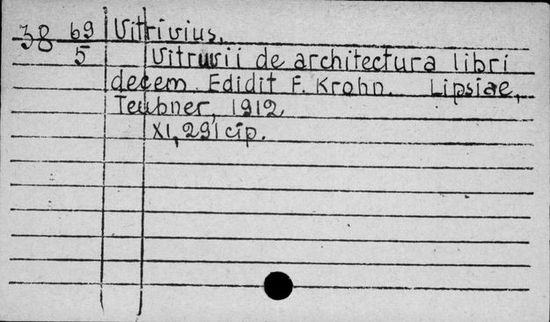 38 69 Vitrivius.
5 Vitruvii de architectura libri
decem. Edidit F. Krohn. Lipsiae,
Teubner, 1912
XI, 291 cip.